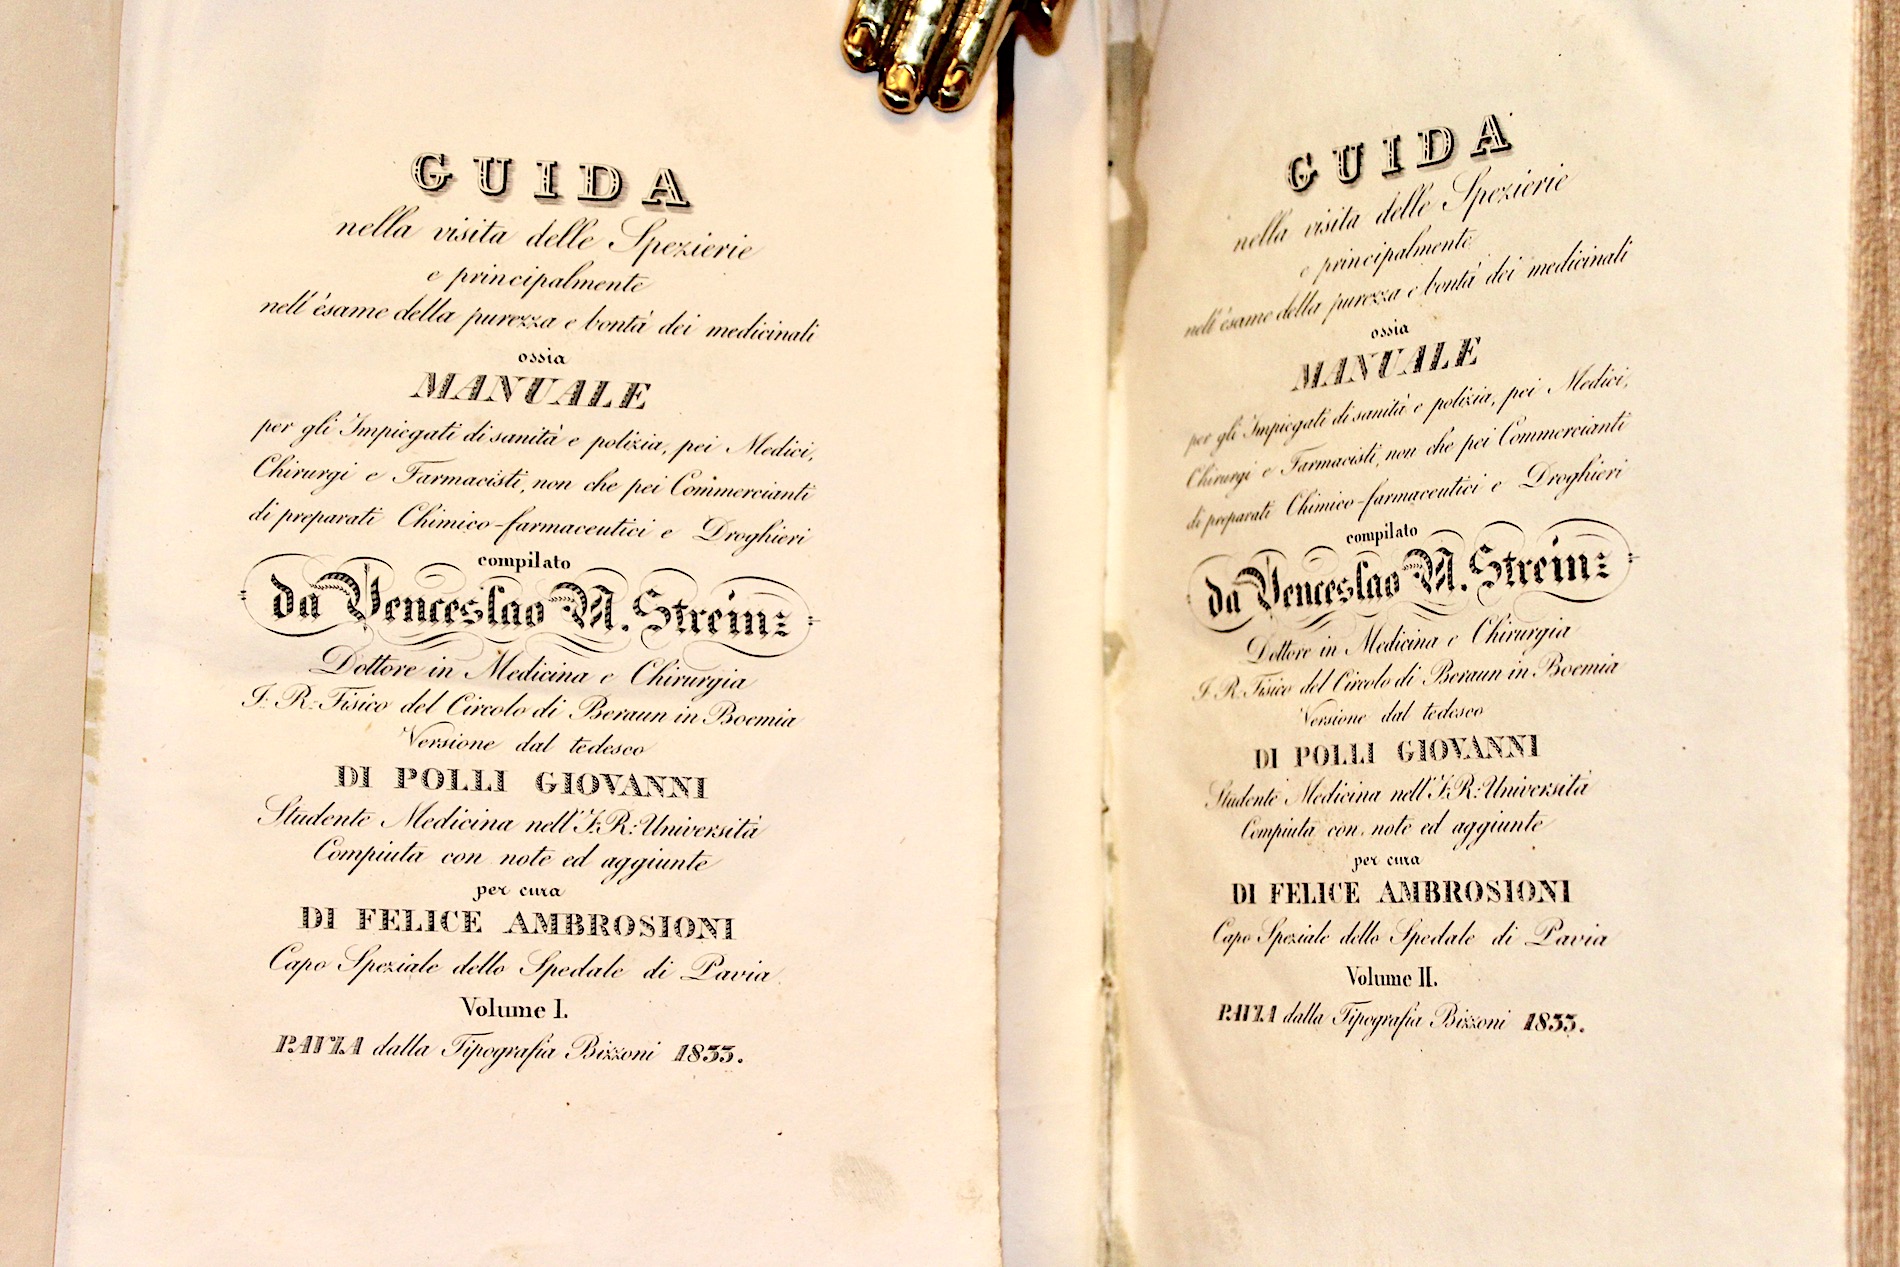 GUIDA
nella visita delle Spezierie
e principalmente
nell'ésame della purezza e bontà dei medicinali
ossia
MANUALE
per gli Impiegati di sanità e polizia, pei Medici,
Chirurgi e Farmacisti, non che pei Commercianti
di preparati Chimico-farmaceutici e Droghieri
compilato
da Venceslao A. Streinz
Dottore in Medicina e Chirurgia
I: R: Fisico del Circolo di Beraun in Boemia
Versione dal tedesco
DI POLLI GIOVANNI
Studente Medicina nell'I:R: Università
Compiuta con note ed aggiunte
per cura
DI FELICE AMBROSIONI
Capo Speziale dello Spedale di Pavia
Volume I.
PAVIA dalla Tipografia Bizzoni 1833.
GUIDA
nella visita delle Spezierie
e principalmente
nell'ésame della purezza e bontà dei medicinali
ossia
MANUALE
per gli Impiegati di sanità e polizia, pei Medici,
Chirurgi e Farmacisti, non che pei Commercianti
di preparati Chimico-farmaceutici e Droghieri
compilato
da Venceslao A. Streinz
Dottore in Medicina e Chirurgia
I: R: Fisico del Circolo di Beraun in Boemia
Versione dal tedesco
DI POLLI GIOVANNI
Studente Medicina nell'I:R: Università
Compiuta con note ed aggiunte
per cura
DI FELICE AMBROSIONI
Capo Speziale dello Spedale di Pavia
Volume II.
PAVIA dalla Tipografia Bizzoni 1833.